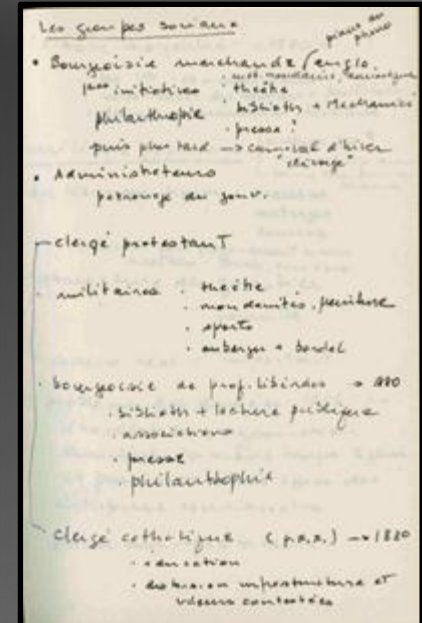 Les groupes sociaux
piano au
phono
• Bourgeoisie marchande / anglo.
initiatives : théâtre
philanthropie · biblioth + Mechanics'
· presse
puis plus tard → carnaval d'hiver
"clivage"
• Administrateurs
patronage du gouv.
clergé protestant
· militaires : théâtre
· mondanités, peinture
· sports
· auberges + bordel
· bourgeoisie de prof. libérales →
· biblioth + lecture publique
· associations
· presse
· philanthropie
clergé catholique (p.r.r.) → 1820
· éducation
· infrastructure et
valeurs contestées